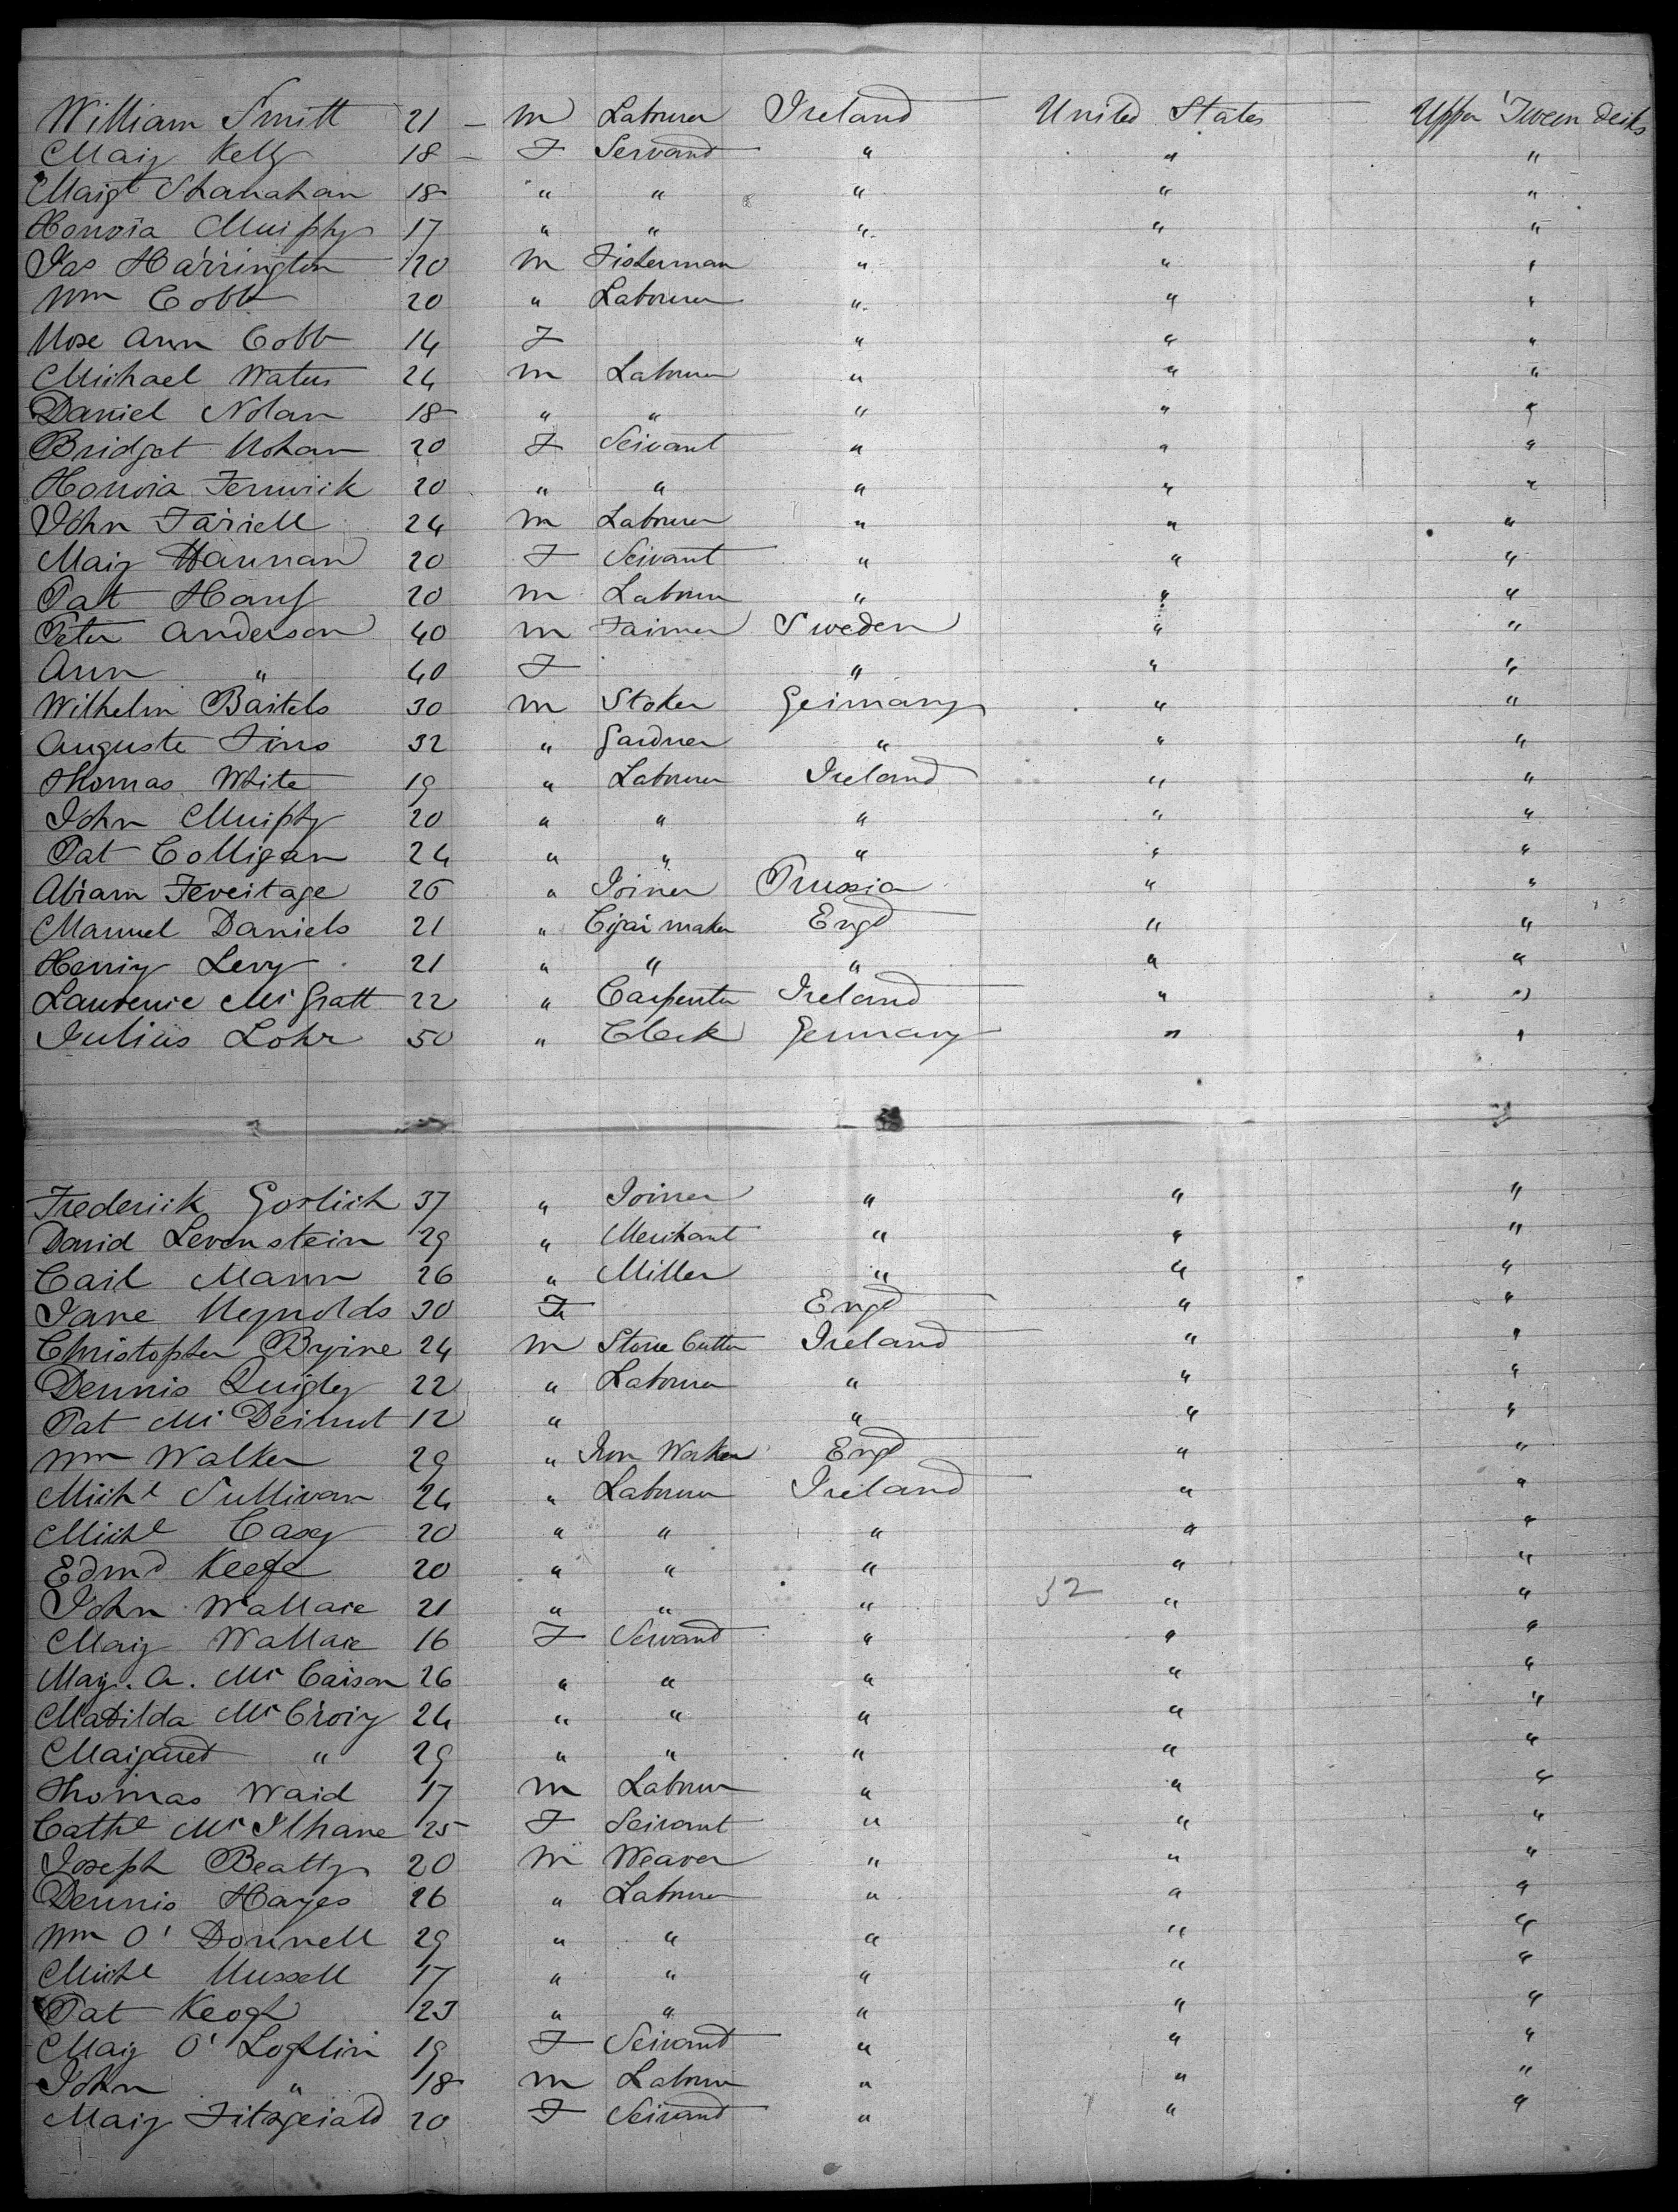 William Smitt 21 - M Labourer Ireland United States Upper 'Tween Decks
Mary Kelly 18 - F Servand " " "
Margt Shanahan 18 " " " " "
Honora Murphy 17 " " " " "
Jas Harrington 20 M Fisherman " " "
Wm Cobb 20 " Labourer " " "
Rose Ann Cobb 14 F " " "
Michael Waters 24 M Labourer " " "
Daniel Nolan 18 " " " " "
Bridget Rohan 20 F Servant " " "
Honora Fenwick 20 " " " " "
John Farrell 24 M Labourer " " "
Mary Hannan 20 F Servant " " "
Pat 20 M Labourer " " "
Peter Anderson 40 M Farmer Sweden " "
Ann " 40 F " " "
Wilhelm Bartels 30 M Stoker Germany " "
Auguste 32 " Gardner " " "
Thomas White 19 " Labourer Ireland " "
John Murphy 20 " " " " "
Pat Colligan 24 " " " " "
Abram Feveitage " Joiner Prussia " "
Manuel Daniels 21 " Cigar maker Engd " "
Henry Levy 21 " " " " "
Laurence Mc Gratt 22 " Carpenter Ireland " "
Julius Lohr 50 " Clerk Germany " "
Frederick Gorlich 37 " Joiner " " "
David Levenstein 29 " Merchant " " "
Carl Mann 26 " Miller " " "
Jane Reynolds 30 F Engd " "
Christopher Byrne 24 M Stone Cutter Ireland " "
Dennis Quigley 22 " Labourer " " "
Pat Mc Dermot 12 " " " "
Wm Walker 29 " Iron Worker Engd " "
Michl Sullivan 24 " Labourer Ireland " "
Michl Casey 20 " " " " "
Edmd Keefe 20 " " " " "
John Wallace 21 " " " 32 " "
Mary Wallace 16 F Servand " " "
Mary. A. Mc Carson 26 " " " " "
Matilda Mc Crory 24 " " " " "
Margaret " 29 " " " " "
Thomas Ward 17 M Labourer " " "
Cathe Mc Ilhane 25 F Servant " " "
Joseph Beatty 20 M Weaver " " "
Dennis Hayes 26 " Labourer " " "
Wm O' Donnell 29 " " " " "
Michl Russell 17 " " " " "
Pat Keogh 23 " " " " "
Mary O' Loghlin 19 F Servand " " "
John " 18 M Labourer " " "
Mary Fitzgerald 20 F Servand " " "